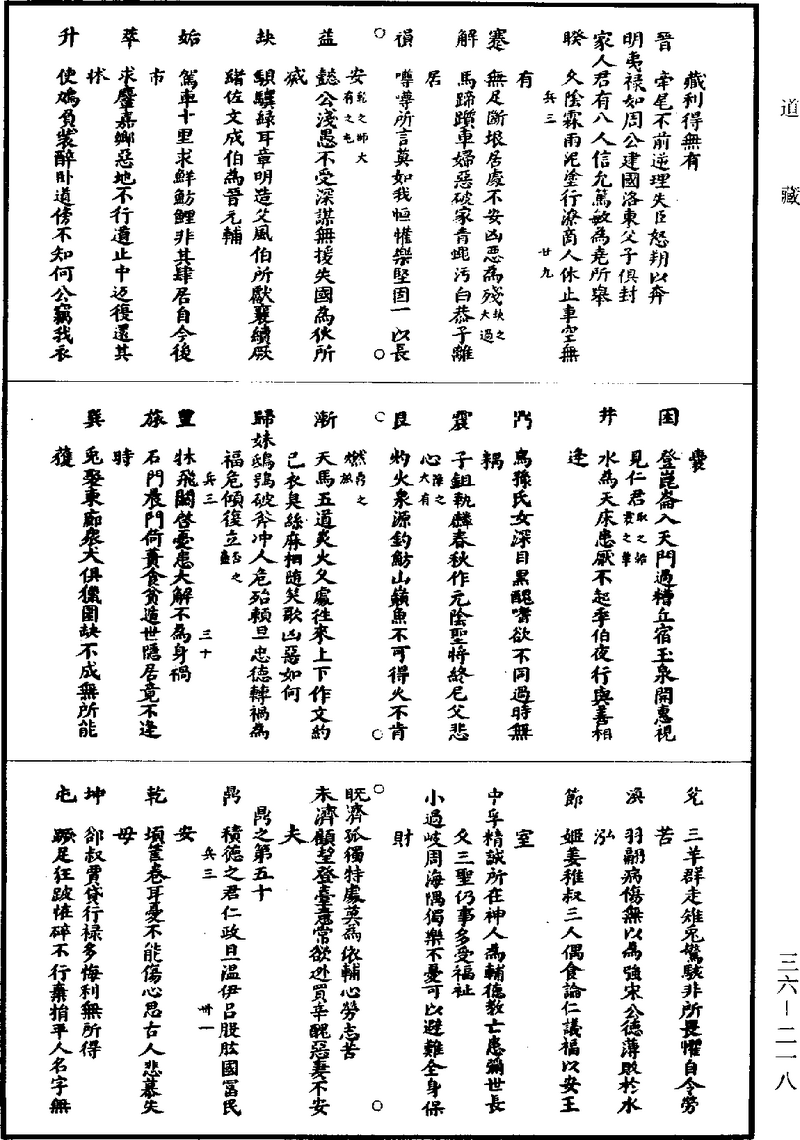 道藏
三六—二一八
藏利得無有
晉　牽尾不前逆理失臣怒朔以奔
明夷祿如周公建國洛東父子俱封
家人君有八人信允篤敏為堯所舉
睽　久陰霖雨泥塗行潦商人休止車空無
兵三　廿九
有
蹇　無足斷垠居處不安凶惡為殘 夬之大過
解　馬蹄躓車婦惡破家青蠅污白恭子離
居
損　噂噂所言莫如我恒懽樂堅固一以長
安 乾之師大有之屯
益　懿公淺愚不受深謀無援失國為狄所
滅
夬　騏驥綠耳章明造父風伯所獻襄續厥
緒佐文成伯為晉元輔
姤　駕車十里求鮮魴鯉非其肆居自令後
市
萃　求麞嘉鄉惡地不行道止中迄復還其
牀
升　使鴆負裝醉臥道傍不知何公竊我衣
囊
困　登崑崙入天門過糟丘宿玉泉開惠視
見仁君
井　水為天床患厭不起季伯夜行與喜相
逢
鼎　烏孫氏女深目黑醜嗜欲不同過時無
耦
震　子鉏執麟春秋作元陰聖將終尼父悲
心 陳之大有
艮　灼火泉源釣魴山巔魚不可得火不肯
燃
漸　天馬五道炎火久處往來上下作文約
己衣臭絲麻相隨笑歌凶惡如何
歸妹鴟鴞破斧沖人危殆賴旦忠德轉禍為
福危傾復立
兵三　三十
豐　牀飛闥啓憂患大解不為身禍
旅　石門晨門荷蕢食貧遁世隱居竟不逢
時
巽　兔聚東廊衆犬俱獵圍缺不成無所能
獲
兌　三羊群走雉兔驚駭非所畏懼自令勞
苦
渙　羽翮病傷無以為強宋公德薄敗於水
泓
節　姬姜稚叔三人偶食論仁議福以安王
室
中孚精誠所在神人為輔德教亡患彌世長
久三聖仍事多受福祉
小過岐周海隅獨樂不憂可以避難全身保
財
旣濟孤獨特處莫為依輔心勞志苦
未濟顧望登臺意常欲逃買辛醜惡妻不安
夫
鼎之第五十
鼎　積德之君仁政且溫伊呂股肱國富民
兵三　卅一
安
乾　頃筐卷耳憂不能傷心思古人悲慕失
母
坤　卻叔賈貸行祿多悔利無所得
屯　蹶足狂跛惟碎不行棄捐平人名字無